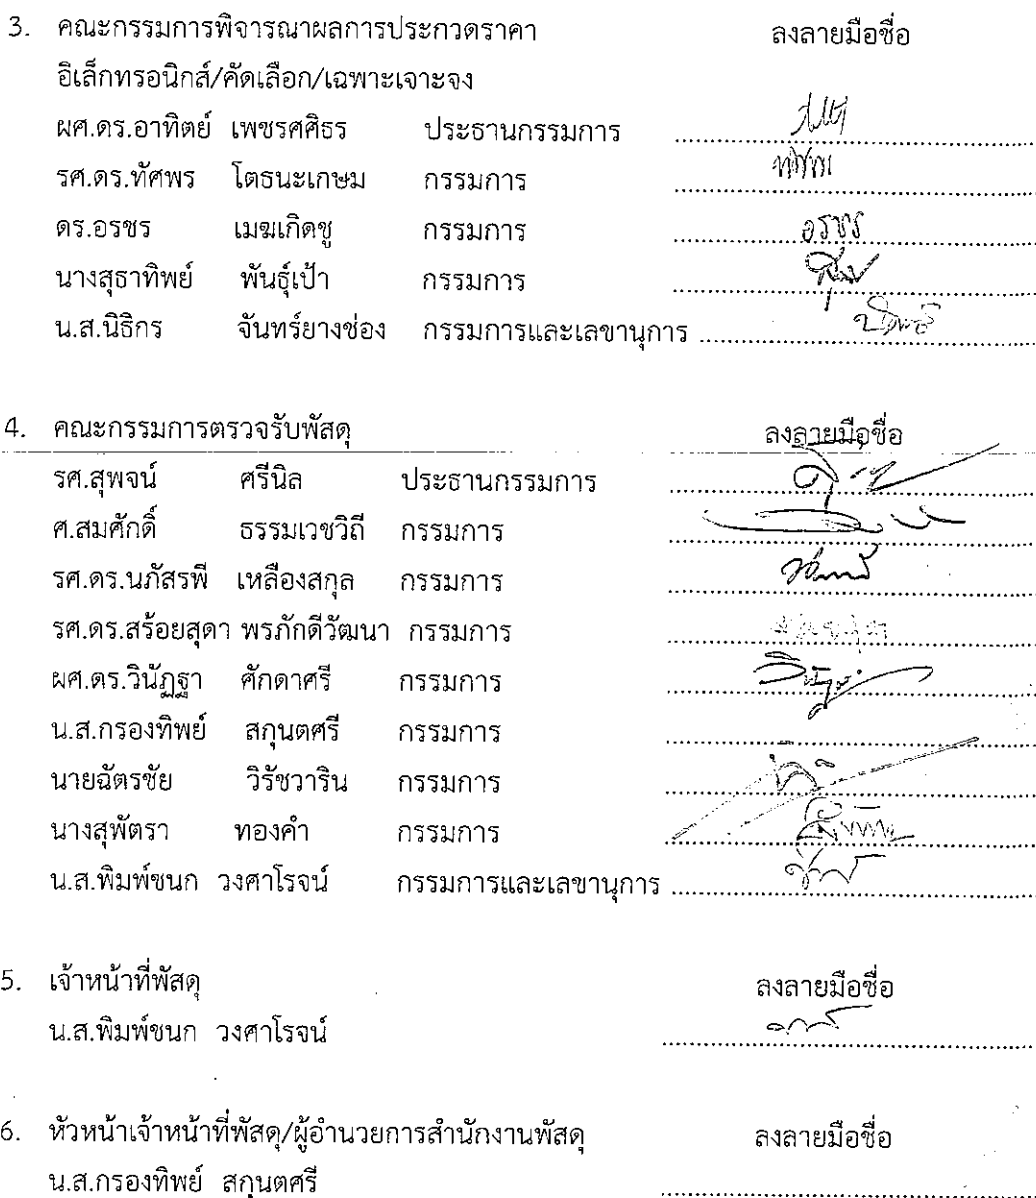 3. คณะกรรมการพิจารณาผลการประกวดราคา ลงลายมือชื่อ
อิเล็กทรอนิกส์/คัดเลือก/เฉพาะเจาะจง
ผศ.ดร.อาทิตย์ เพชรศศิธร ประธานกรรมการ
รศ.ดร.ทัศพร โตธนะเกษม กรรมการ
ดร.อรชร เมฆเกิดชู กรรมการ อรชร
นางสุธาทิพย์ พันธุ์เป้า กรรมการ
น.ส.นิธิกร จันทร์ยางช่อง กรรมการและเลขานุการ
4. คณะกรรมการตรวจรับพัสดุ ลงลายมือชื่อ
รศ.สุพจน์ ศรีนิล ประธานกรรมการ
ศ.สมศักดิ์ ธรรมเวชวิถี กรรมการ
รศ.ดร.นภัสรพี เหลืองสกุล กรรมการ
รศ.ดร.สร้อยสุดา พรภักดีวัฒนา กรรมการ
ผศ.ดร.วินัฏฐา ศักดาศรี กรรมการ
น.ส.กรองทิพย์ สกุนตศรี กรรมการ
นายฉัตรชัย วิรัชวาริน กรรมการ
นางสุพัตรา ทองคำ กรรมการ
น.ส.พิมพ์ชนก วงศาโรจน์ กรรมการและเลขานุการ
5. เจ้าหน้าที่พัสดุ ลงลายมือชื่อ
น.ส.พิมพ์ชนก วงศาโรจน์
6. หัวหน้าเจ้าหน้าที่พัสดุ/ผู้อำนวยการสำนักงานพัสดุ ลงลายมือชื่อ
น.ส.กรองทิพย์ สกุนตศรี